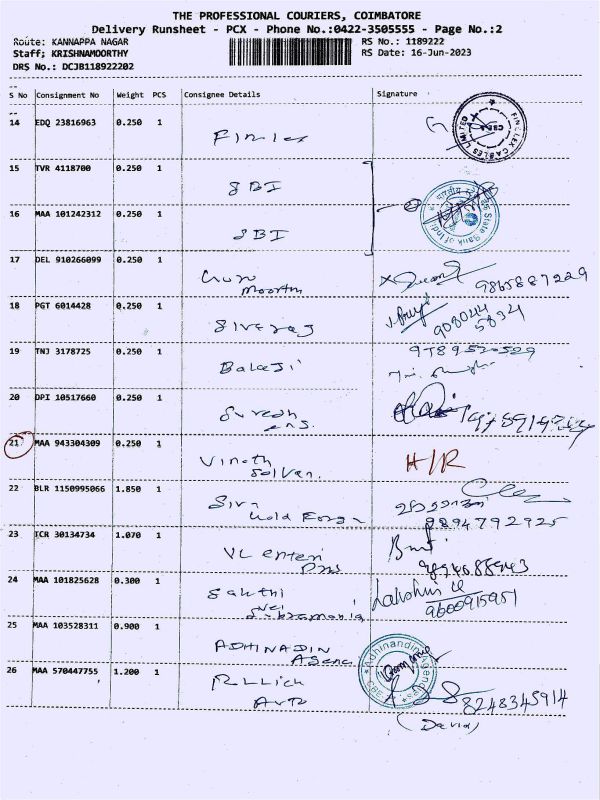 THE PROFESSIONAL COURIERS, COIMBATORE
Delivery Runsheet - PCX - Phone No.:0422-3505555 - Page No.:2
Route: KANNAPPA NAGAR RS No.: 1189222
Staff; KRISHNAMOORTHY RS Date: 16-Jun-2023
DRS No.: DCJB118922202
S No Consignment No Weight PCS Consignee Details Signature
14 EDQ 23816963 0.250 1
FINOLEX CABLES LIMITED
15 TVR 4118700 0.250 1 SBI
16 MAA 101242312 0.250 1 SBI
State Bank of India
17 DEL 910266099 0.250 1 Guru Moorthi
9865887229
18 PGT 6014428 0.250 1 Sivaraj
908044
5834
19 TNJ 3178725 0.250 1 Balaji
9789520529
20 DPI 10517660 0.250 1 Suresh
21 MAA 943304309 0.250 1 Vinoth Selvan. H/R
22 BLR 1150995066 1.850 1 Siva Gold
8894792925
23 TCR 30134734 1.070 1 VL
24 MAA 101825628 0.300 1 Sakthi
Lakshmi
9600915951
25 MAA 103528311 0.900 1 ADHINADIN
Adhinandin Agencies
26 MAA 570447755 1.200 1
8248345914
(David)